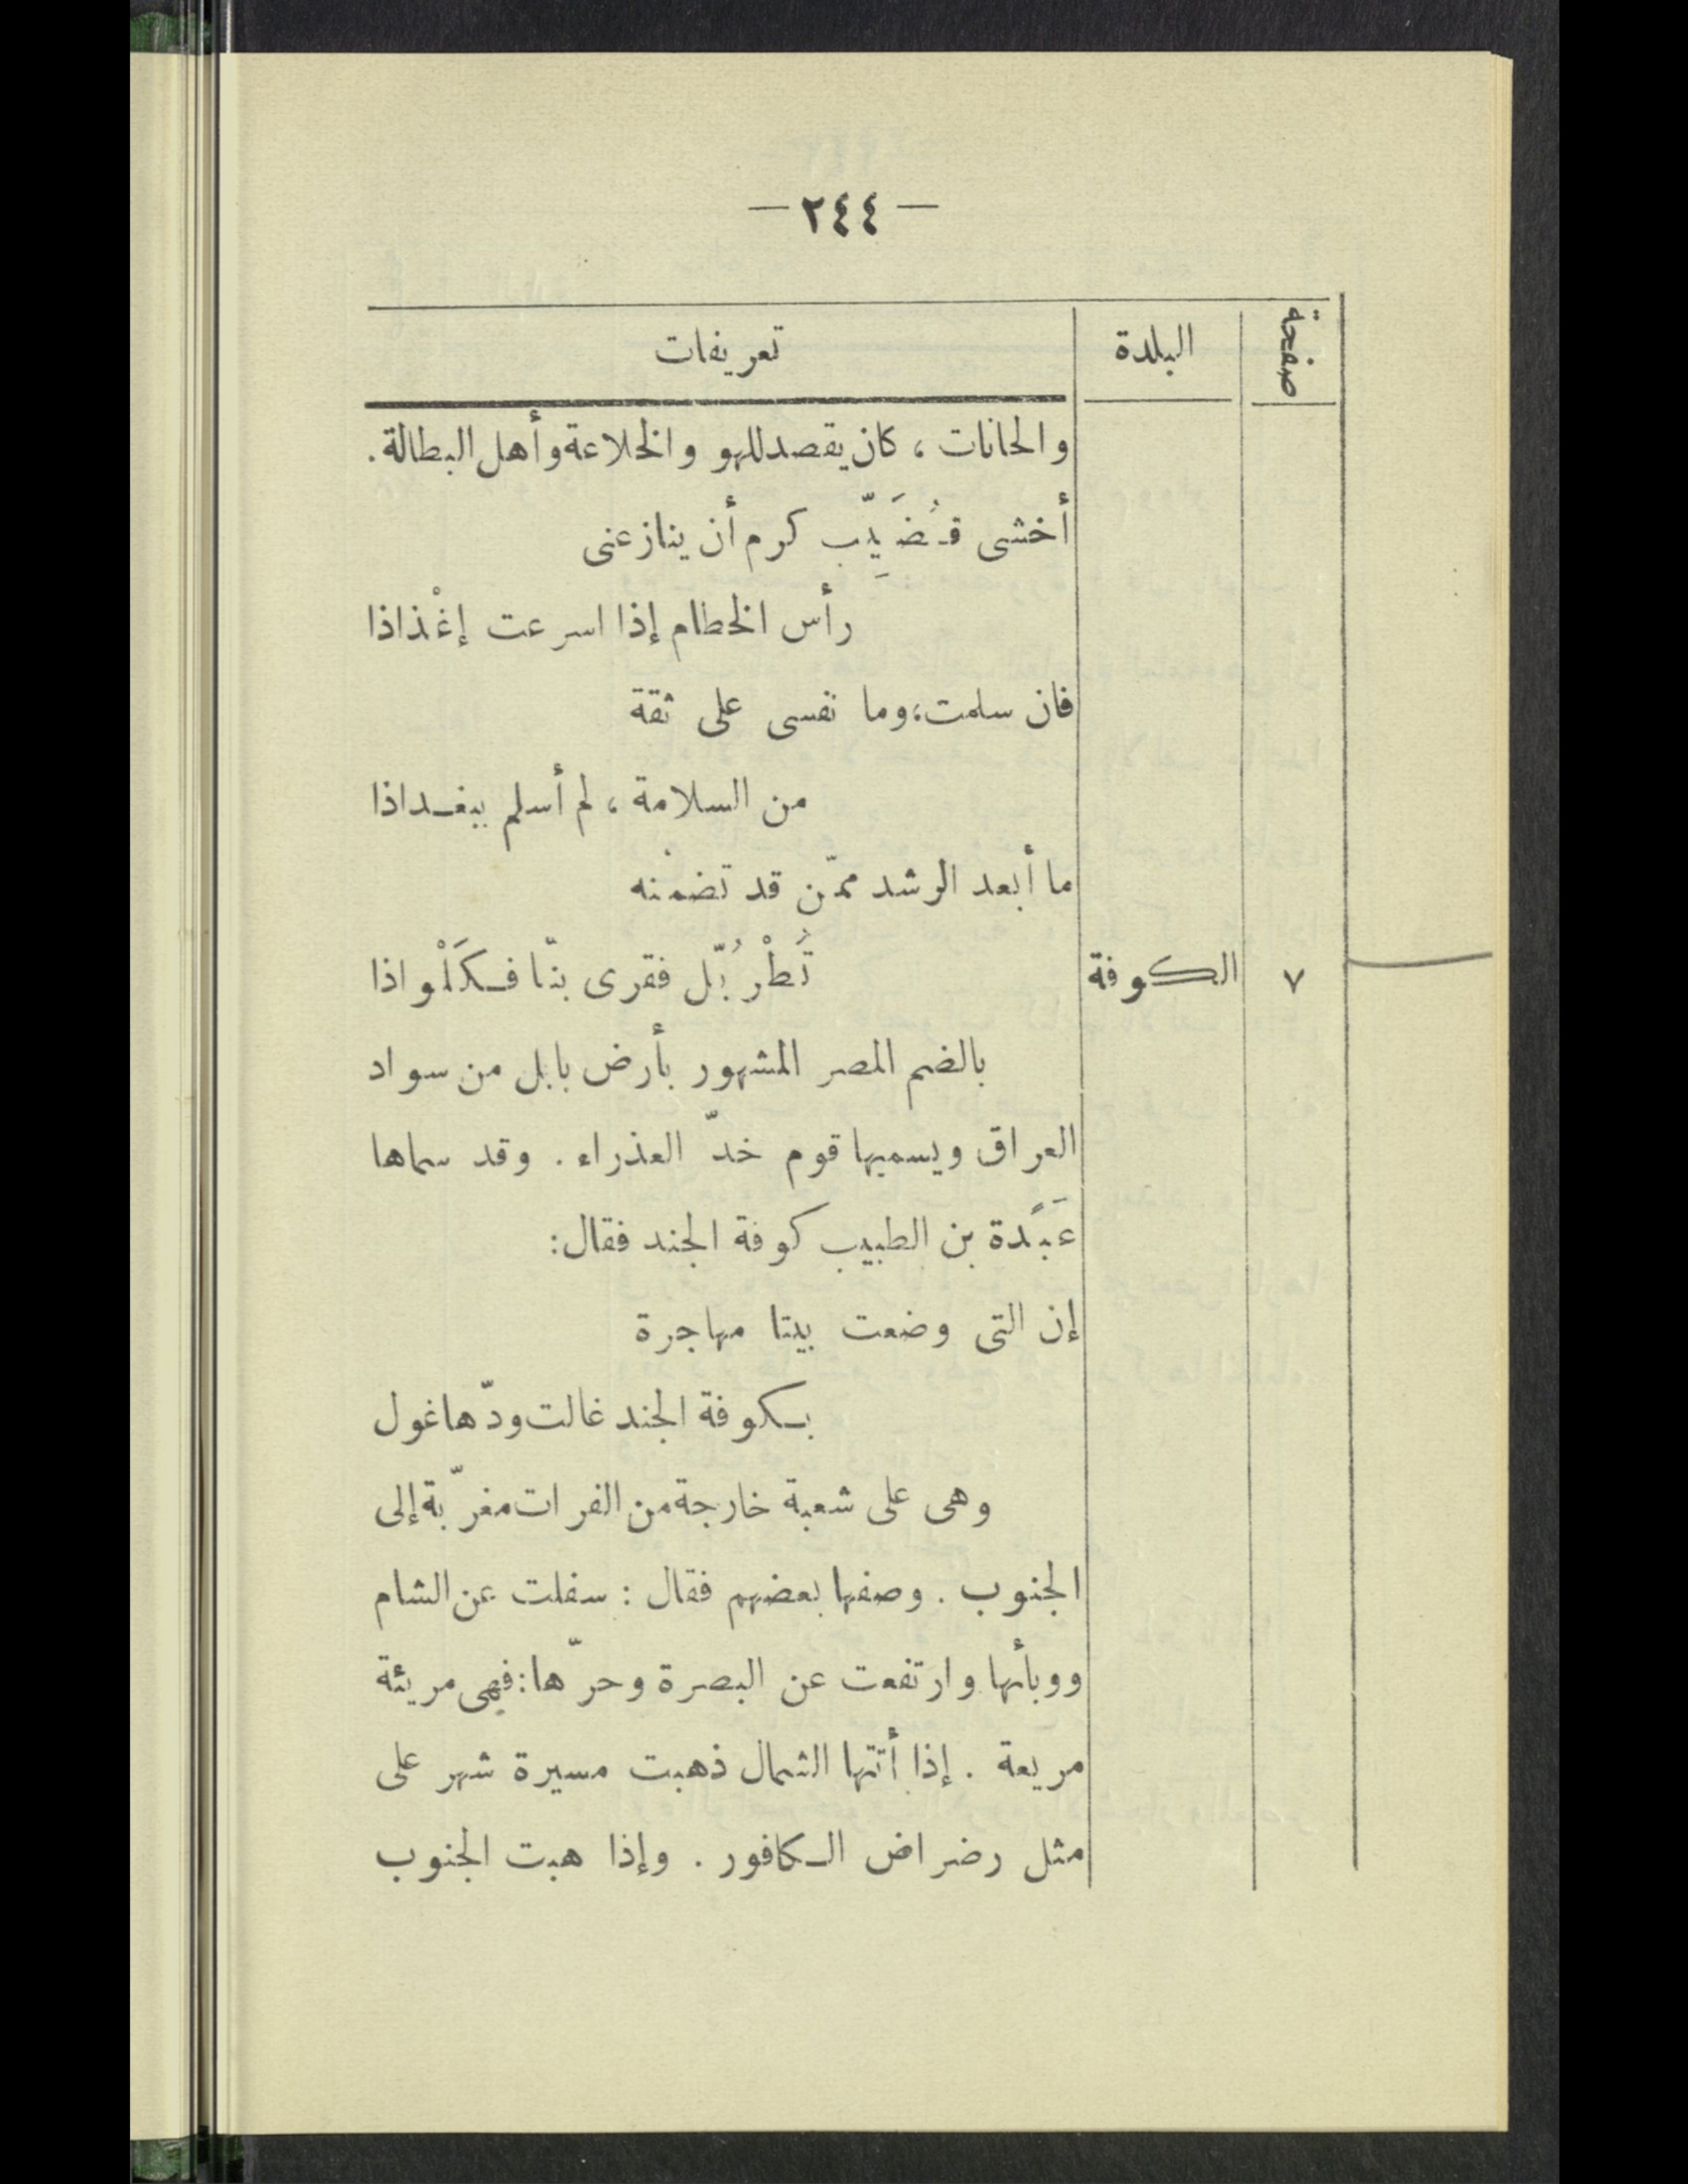 — ٢٤٤ —
صفحة البلدة تعريفات
والحانات ، كان يقصد للهو والخلاعة وأهل البطالة .
أخشى قُضَيِّب كرم أن ينازعنى
رأس الخطام إذا اسرعت إغْذاذا
فان سلمت، وما نفسى على ثقة
من السلامة ، لم أسلم ببغداذا
ما أبعد الرشد ممّن قد تضمنه
٧ الكوفة قُطْرُبّل فقرى بنّا فكَلْواذا
بالضم المصر المشهور بأرض بابل من سواد
العراق ويسميها قوم خدّ العذراء . وقد سماها
عَبْدة بن الطبيب كوفة الجند فقال:
إن التى وضعت بيتا مهاجرة
بكوفة الجند غالت ودّها غول
وهى على شعبة خارجة من الفرات مغرّبة إلى
الجنوب . وصفها بعضهم فقال : سفلت عن الشام
ووبأئها وارتفعت عن البصرة وحرّها: فهى مريئة
مريعة . إذا أتتها الشمال ذهبت مسيرة شهر على
مثل رضراض الكافور . وإذا هبت الجنوب